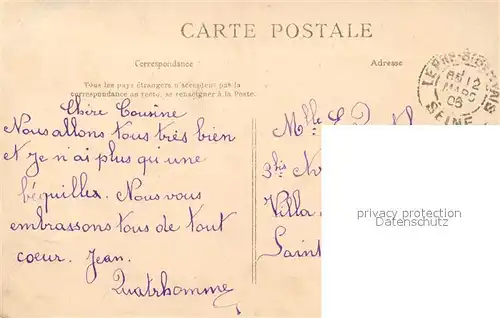 CARTE POSTALE
Correspondance
Adresse
Tous les pays étrangers n'acceptent pas la
correspondance au recto, se renseigner à la Poste.
SEINE
Chère Cousine
Nous allons tous très bien
et je n'ai plus qu'une
béquilles. Nous vous
embrassons tous de tout
coeur. Jean.
Quatrhomme
Mlle
3bis
Villa
Saint
privacy protection
Datenschutz